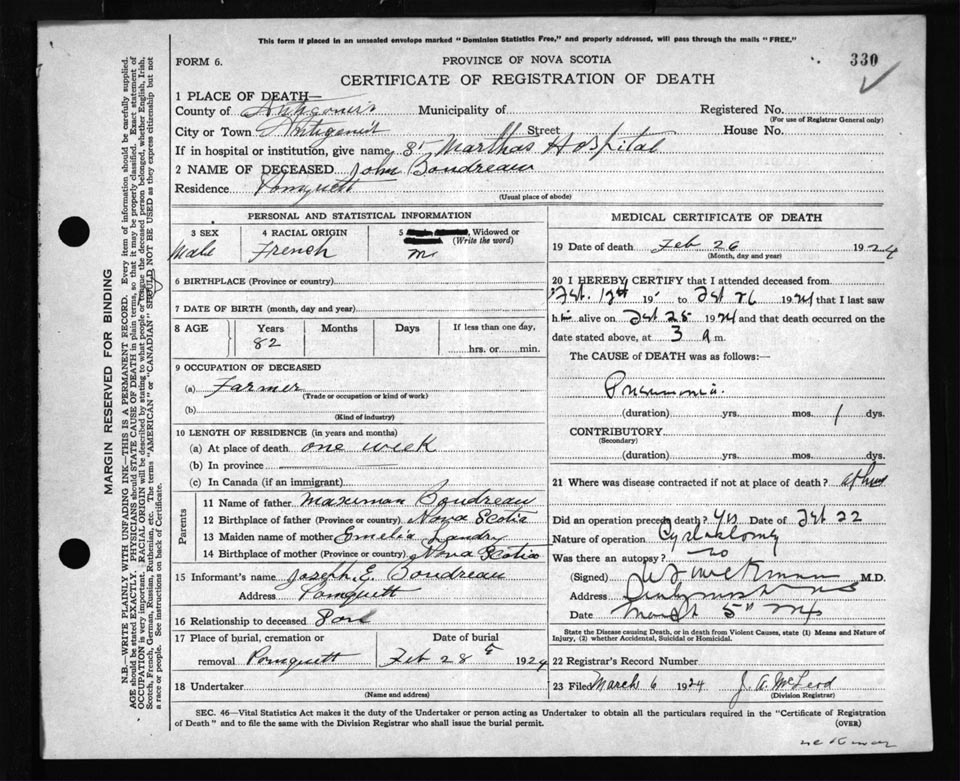 This form if placed in an unsealed envelope marked "Dominion Statistics Free," and properly addressed, will pass through the mails "FREE."
FORM 6.
PROVINCE OF NOVA SCOTIA
330
CERTIFICATE OF REGISTRATION OF DEATH
1 PLACE OF DEATH—
County of Antigonish Municipality of Registered No.
(For use of Registrar General only)
City or Town Antigonish Street House No.
If in hospital or institution, give name St Marthas Hospital
2 NAME OF DECEASED John Boudreau
Residence Pomquett
(Usual place of abode)
PERSONAL AND STATISTICAL INFORMATION
3 SEX
Male
4 RACIAL ORIGIN
French
5 Widowed or
(Write the word)
M
6 BIRTHPLACE (Province or country)
7 DATE OF BIRTH (month, day and year)
8 AGE Years Months Days If less than one day,
82 hrs. or min.
9 OCCUPATION OF DECEASED
(a) Farmer
(Trade or occupation or kind of work)
(b)
(Kind of industry)
10 LENGTH OF RESIDENCE (in years and months)
(a) At place of death one week
(b) In province
(c) In Canada (if an immigrant)
Parents
11 Name of father Maximan Boudreau
12 Birthplace of father (Province or country) Nova Scotia
13 Maiden name of mother Emelia Landry
14 Birthplace of mother (Province or country) Nova Scotia
15 Informant's name Joseph E. Boudreau
Address Pomquett
16 Relationship to deceased Son
17 Place of burial, cremation or Date of burial
removal Pomquett Feb 28 1924
18 Undertaker
(Name and address)
MEDICAL CERTIFICATE OF DEATH
19 Date of death Feb 26 1924
(Month, day and year)
20 I HEREBY CERTIFY that I attended deceased from
Feb. 19 to Feb 26 1924 that I last saw
h alive on Feb 25 1924 and that death occurred on
date stated above, at 3 a m.
The CAUSE of DEATH was as follows:
Pneumonia
(duration) yrs. mos. 1 dys.
CONTRIBUTORY
(Secondary)
(duration) yrs. mos. dys.
21 Where was disease contracted if not at place of death?
Did an operation precede death? Yes Date of Feb 22
Nature of operation
Was there an autopsy? no
(Signed) M.D.
Address
Date March 5
State the Disease causing Death, or in death from Violent Causes, state (1) Means and Nature of
Injury, (2) whether Accidental, Suicidal or Homicidal.
22 Registrar's Record Number
23 Filed March 6 1924 J. A. McLeod
(Division Registrar)
SEC. 46—Vital Statistics Act makes it the duty of the Undertaker or person acting as Undertaker to obtain all the particulars required in the "Certificate of Registration
of Death" and to file the same with the Division Registrar who shall issue the burial permit.
(OVER)
MARGIN RESERVED FOR BINDING
N.B.—WRITE PLAINLY WITH UNFADING INK—THIS IS A PERMANENT RECORD. Every item of information should be carefully supplied.
AGE should be stated EXACTLY. PHYSICIANS should STATE CAUSE OF DEATH in plain terms, so that it may be properly classified. Exact statement of
OCCUPATION is very important. RACIAL ORIGIN will be described by stating to what people or the deceased person belonged, whether English, Irish,
Scotch, French, German, Russian, Ruthenian, etc. The terms "AMERICAN" or "CANADIAN" SHOULD NOT BE USED as they express citizenship but not
a race or people. See instructions on back of Certificate.